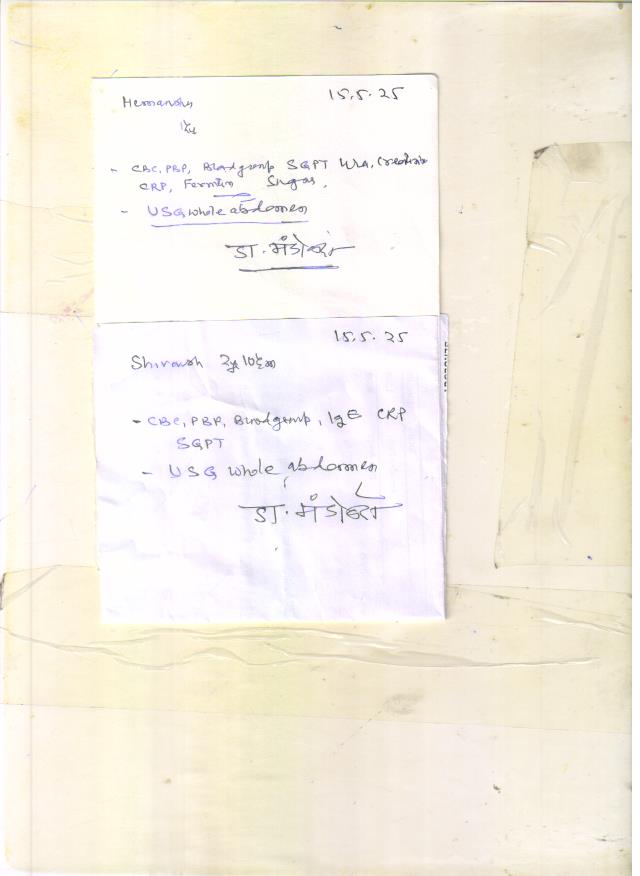 15.5.25
Hemanshu
- CBC, PBP, Bloodgroup SGPT Creatinin
CRP, Ferritin Sugar,
- USG whole abdomen
डा. मंडोवरा
15.5.25
Shivansh
- CBC, PBP, Bloodgroup, IgE CRP
SGPT
- USG whole abdomen
डा. मंडोवरा